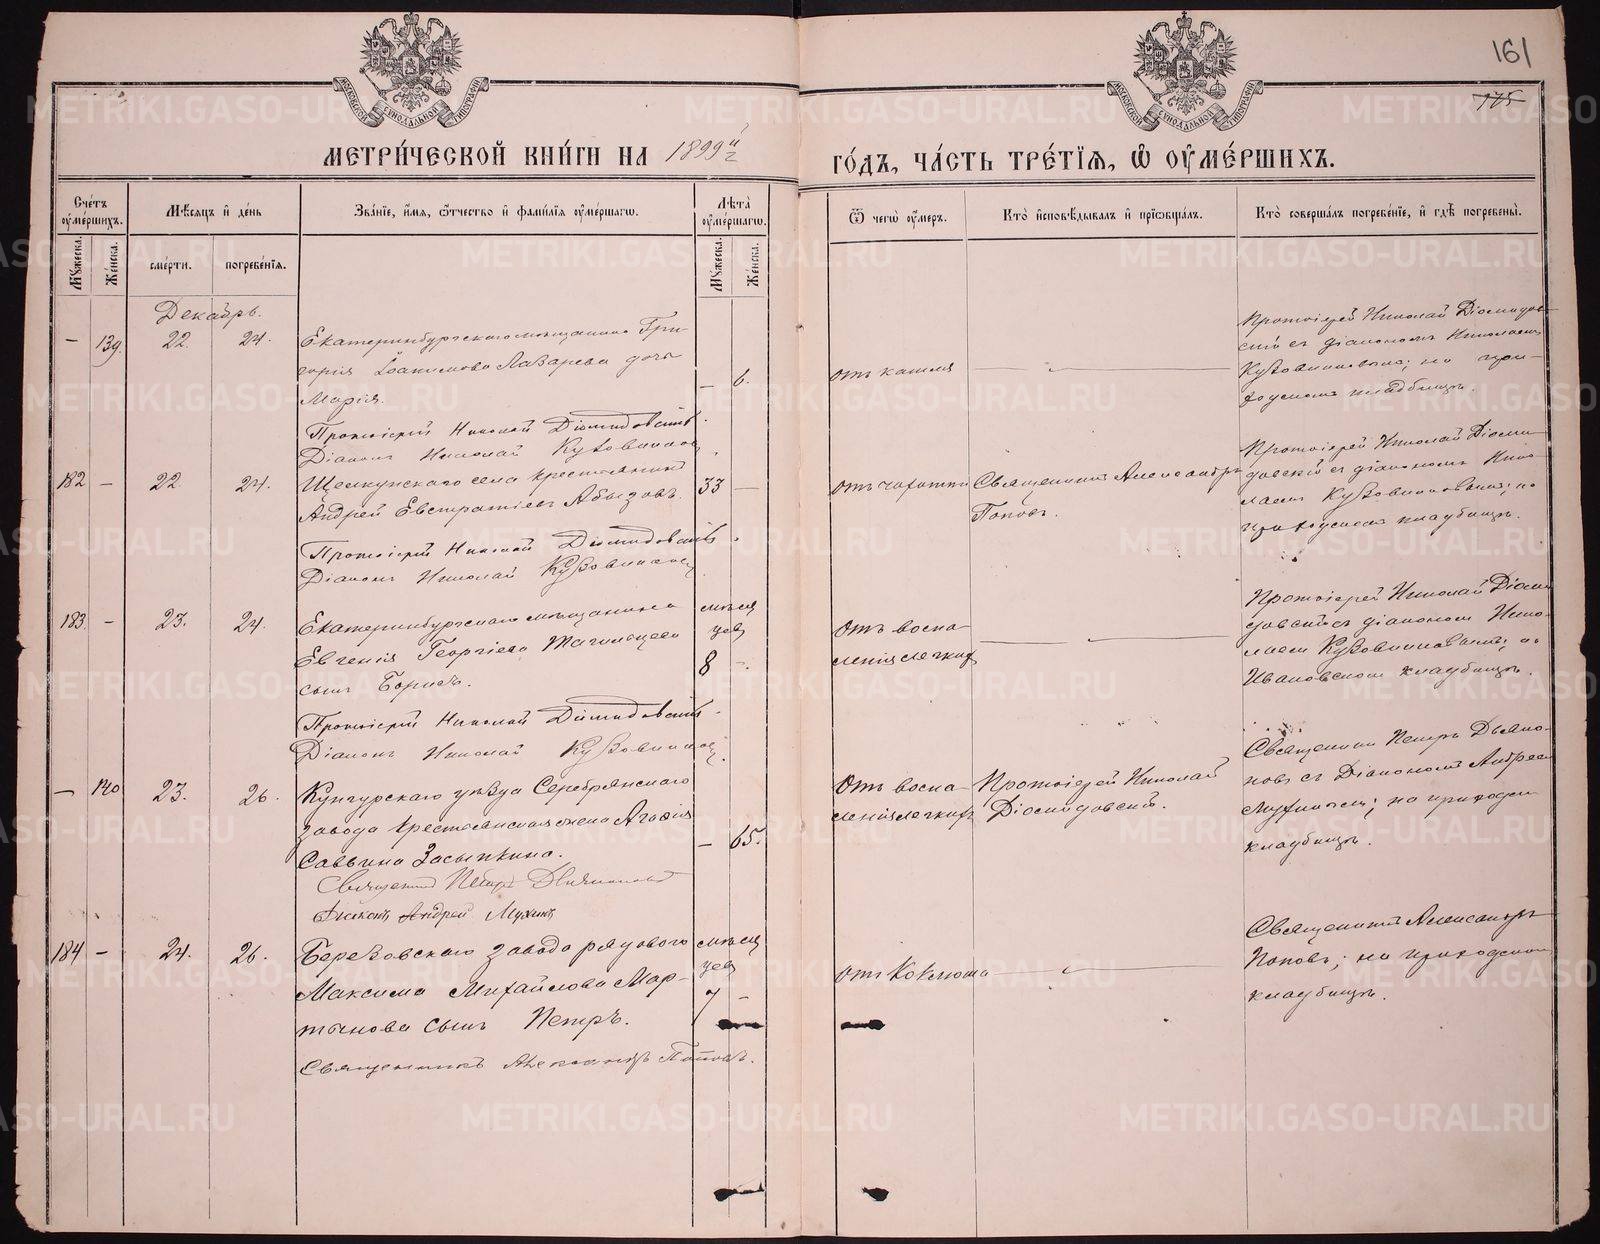 161
175
МОСКОВСКОЙ СѴНОДАЛЬНОЙ ТИПОГРАФІИ
МОСКОВСКОЙ СѴНОДАЛЬНОЙ ТИПОГРАФІИ
МЕТРИ́ЧЕСКОЙ КНИ́ГИ НА 1899й
ГО́ДЪ, ЧА́СТЬ ТРЕ́ТІѦ, Ѡ҆ ОУ҆МЕ́РШИХЪ.
Сче́тъ оу҆ме́ршихъ.
Мꙋ́жеска.
Же́нска.
Мѣ́сѧцъ и҆ де́нь
сме́рти.
погребе́нїѧ.
Зва́нїе, и҆́мѧ, ѻ҆́тчество и҆ фами́лїѧ оу҆ме́ршагѡ.
Лѣ́та оу҆ме́ршагѡ.
Мꙋ́жеска.
Же́нска.
Ѿ чегѡ̀ оу҆́меръ.
Кто̀ и҆сповѣ́дывалъ и҆ прїѡбща́лъ.
Кто̀ соверша́лъ погребе́нїе, и҆ гдѣ̀ погребены̀.
Декабрь.
– 139. 22. 24. Екатеринбургскаго мѣщанина Гри-
горія Іоакимова Лазарева дочь
Марія.
– 6.
отъ кашля
Протоіерей Николай Діомидов-
скій съ діакономъ Николаемъ
Кузовниковымъ; на при-
ходскомъ кладбищѣ.
Протоіерей Николай Діомидовскій
Діаконъ Николай Кузовниковъ
182 – 22. 24. Щелкунскаго села крестьянинъ
Андрей Евстратіевъ Абызовъ.
33 –
отъ чахотки
Священникъ Александръ
Поповъ.
Протоіерей Николай Діоми-
довскій съ діакономъ Нико-
лаемъ Кузовниковымъ; на
приходскомъ кладбищѣ.
Протоіерей Николай Діомидовскій
Діаконъ Николай Кузовниковъ
183. – 23. 24. Екатеринбургскаго мѣщанина
Евгенія Георгіева Тагильцева
сынъ Борисъ.
мѣся
цев
8 –.
Отъ воспа-
ленія легкихъ
Протоіерей Николай Діоми-
довскій съ діакономъ Нико-
лаемъ Кузовниковымъ; на
Ивановскомъ кладбищѣ.
Протоіерей Николай Діомидовскій
Діаконъ Николай Кузовниковъ
– 140 23. 26. Кунгурскаго уѣзда Серебрянскаго
завода крестьянская жена Агафія
Саввина Засыпкина.
– 65.
Отъ воспа-
ленія легкихъ
Протоіерей Николай
Діомидовскій.
Священникъ Петръ Дьяко-
новъ съ Діакономъ Андреемъ
Мухинымъ; на приходскомъ
кладбищѣ.
Священникъ Петръ Дьяконовъ
Дьяконъ Андрей Мухинъ
184 – 24. 26. Березовскаго завода рядового
Максима Михайлова Мар-
тынова сынъ Петръ.
мѣсяц
цев
7 –
отъ Коклюша
Священникъ Александръ
Поповъ; на приходскомъ
кладбищѣ.
Священникъ Александръ Поповъ.
METRIKI.GASO-URAL.RU